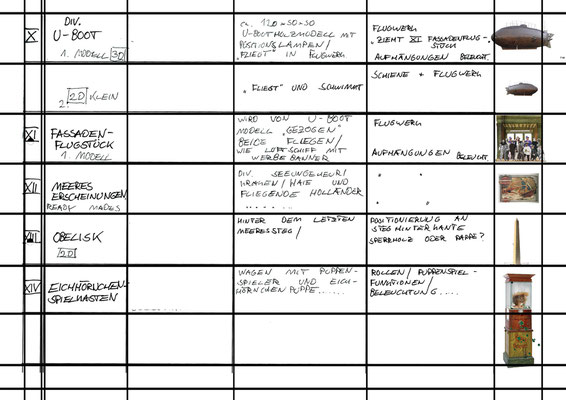 X
DIV.
U-BOOT
1. MODELL 3D
ca. 120×50×50
U-BOOTHOLZMODELL MIT
POSITIONSLAMPEN/
„FLIEGT" IN FLUGWERK
FLUGWERK
„ZIEHT XI FASSADENFLUG-
STÜCK
AUFHÄNGUNGEN BELEUCHT.
2. 2D KLEIN
„FLIEGT" UND SCHWIMMT
SCHIENE + FLUGWERK
XI
FASSADEN-
FLUGSTÜCK
1 MODELL
WIRD VON U-BOOT
MODELL „GEZOGEN"
BEIDE FLIEGEN/
WIE LUFTSCHIFF MIT
WERBEBANNER
FLUGWERK
AUFHÄNGUNGEN BELEUCHT.
XII
MEERES
ERSCHEINUNGEN
READY MADES
DIV. SEEUNGEHEUR/
KRAKEN/HAIE UND
FLIEGENDE HOLLÄNDER
......
" "
" "
XIII
OBELISK
2D
HINTER DEM LETZTEN
MEERESSTEG/
POSITIONIERUNG AN
STEG HINTERKANTE
SPERRHOLZ ODER PAPPE?
XIV
EICHHÖRNCHEN-
SPIELKASTEN
WAGEN MIT PUPPEN-
SPIELER UND EICH-
HÖRNCHENPUPPE......
ROLLEN/PUPPENSPIEL-
FUNKTIONEN/
BELEUCHTUNG....